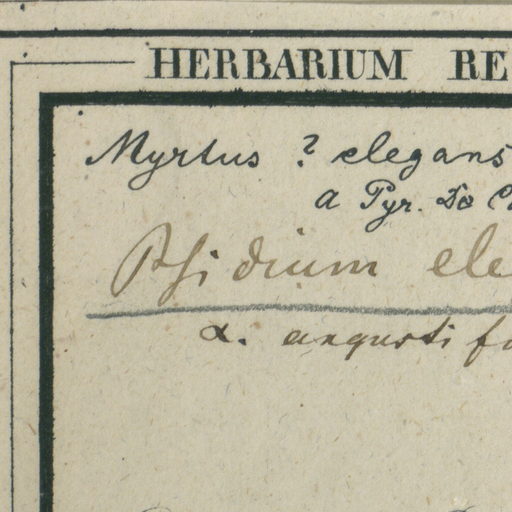 HERBARIUM RE
Myrtus ? elegans
a Pyr. De C
Psidium ele
α. angustifo